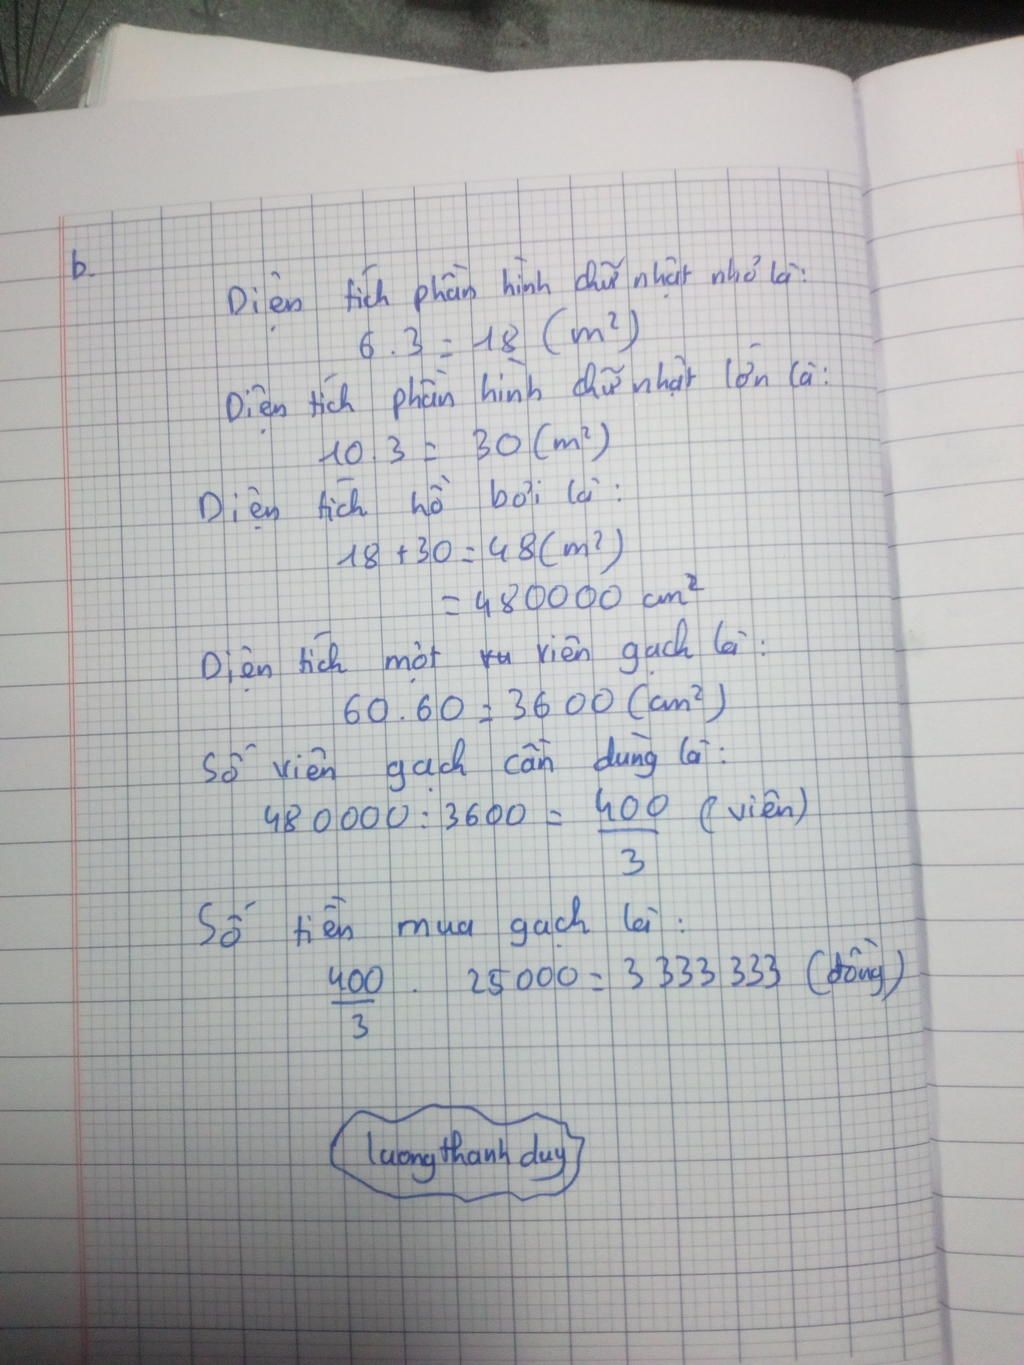 b.
Diện tích phần hình chữ nhật nhỏ là:
6.3 = 18 (m²)
Diện tích phần hình chữ nhật lớn là:
10.3 = 30 (m²)
Diện tích hồ bơi là:
18 + 30 = 48 (m²)
= 480000 cm²
Diện tích một viên gạch là:
60.60 = 3600 (cm²)
Số viên gạch cần dùng là:
480000 : 3600 = 400/3 (viên)
Số tiền mua gạch là:
400/3 . 25000 = 3 333 333 (đồng)
luongthanh duy